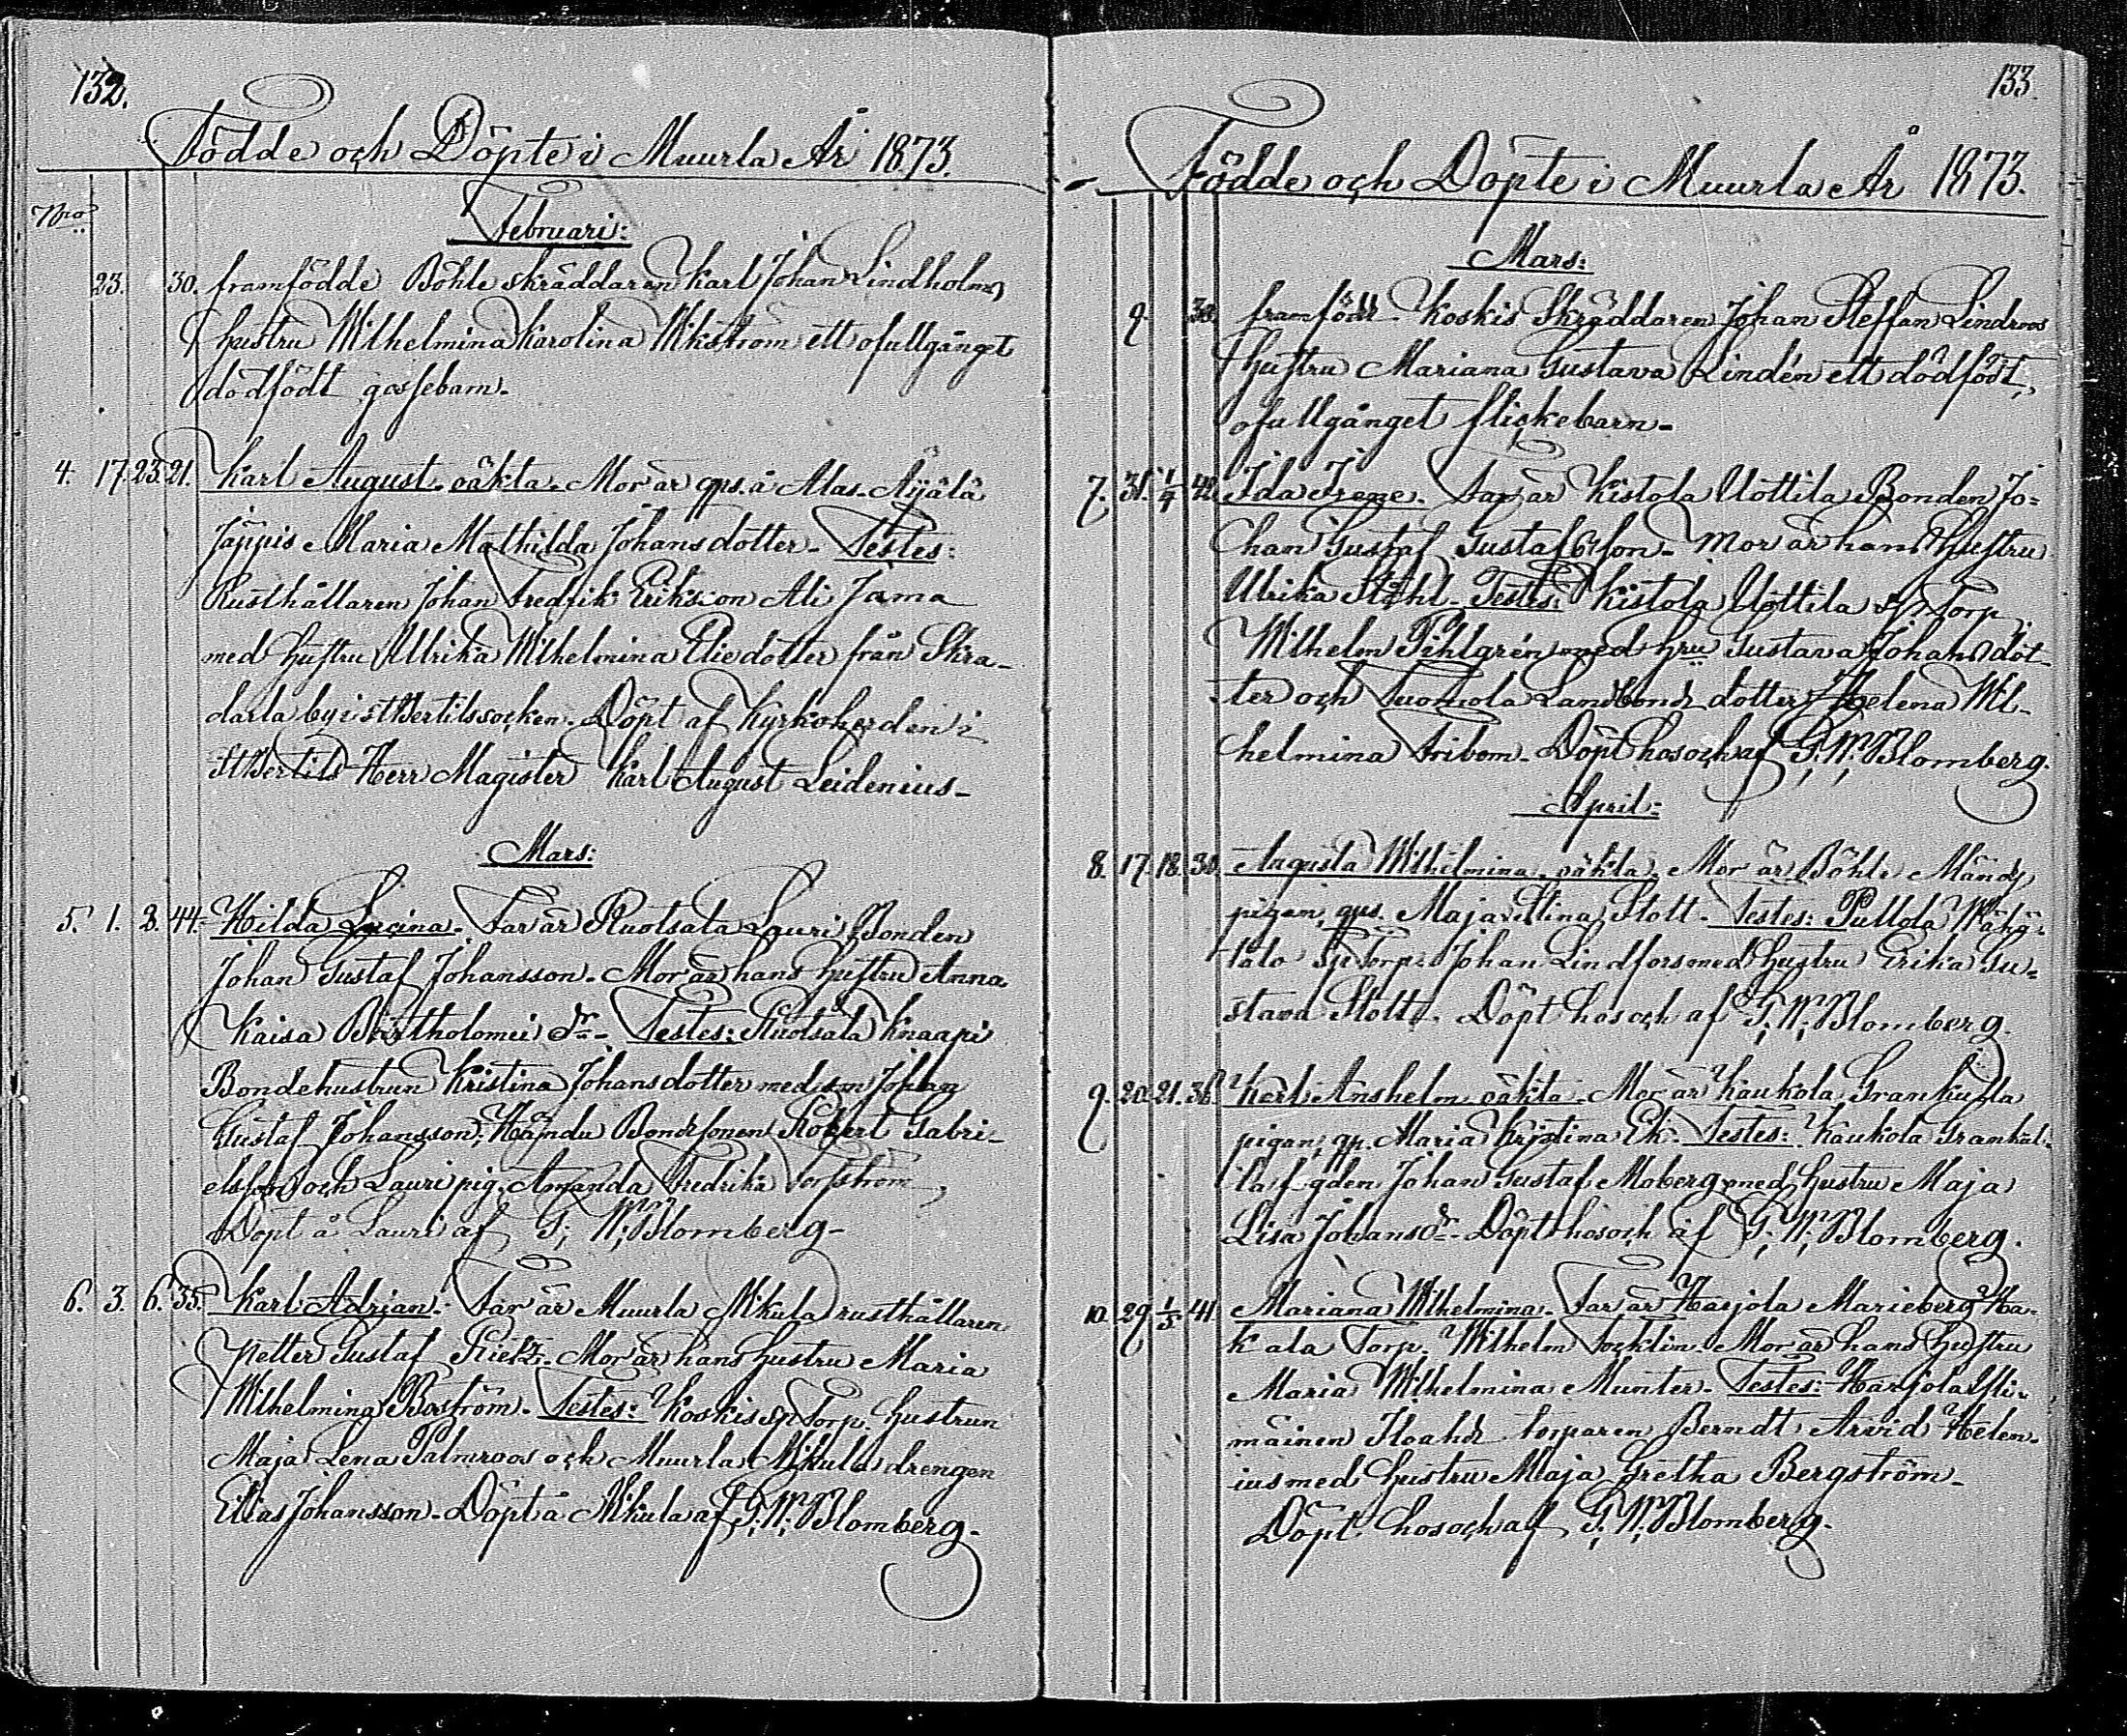 132.
Födde och Döpte i Muurla År 1873.
Nro
Februari:
23. 30. framfödde Böhle skräddaren Karl Johan Lindholms
hustru Wilhelmina Karolina Wikström ett ofullgånget
dödfödt gossebarn.
4. 17. 23. 21. Karl August. oäkta. Mor är qps. å Alas. Äijälä
Jäppis Maria Mathilda Johansdotter. Testes:
Rusthållaren Johan Fredrik Eriksson Ali Jama
med hustru Ulrika Wilhelmina Eliedotter från Skra-
darla by i St Bertils socken. Döpt af Kyrkoherden i
St Bertils Herr Magister Karl August Leidenius.
Mars:
5. 1. 2. 44. Hilda Lucina. Far är Ruotsala Lauri Bonden
Johan Gustaf Johansson. Mor är hans hustru Anna
Kaisa Bartholomei dr. Testes: Ruotsala Knaapi
Bondehustrun Kristina Johansdotter med son Johan
Gustaf Johansson, Händu Bondesonen Robert Gabri-
elsson och Lauri pig. Amanda Fredrika Forsström,
Döpt å Lauri af G: W: Blomberg.
6. 3. 6. 35. Karl Adrian. Far är Muurla Mikula rusthållaren
Petter Gustaf Rietz. Mor är hans hustru Maria
Wilhelmina Boström. Testes: Koskis sp Torp. hustrun
Maja Lena Palmroos och Muurla Mikula drengen
Elias Johansson. Döpt å Mikula af G: W: Blomberg.
133
Födde och Döpte i Muurla År 1873.
Mars:
9. 38. framfödt Koskis Skräddaren Johan Steffan Lindroos
hustru Mariana Gustava Lindén ett dödfödt,
ofullgånget flickebarn.
7. 31. 1/4 42. Ida Irene. Far är Kistola Uottila Bonden Jo-
han Gustaf Gustafsson. Mor är hans hustru
Ulrika Ståhl. Testes: Kistola Uottila Sp Torp.
Wilhelm Pihlgrén med hru Gustava Johansdot-
ter och Tuohiola Landbonds dotter Helena Wil-
helmina Fribom. Döpt hos och af G: W: Blomberg.
April:
8. 17. 18. 30. Augusta Wilhelmina. oäkta. Mor är Böhle Mändy
pigan, qps. Maja Stina Stolt. Testes: Pullola Wähä-
talo Sp Torp. Johan Lindfors med hustru Erika Gu-
stava Stolt. Döpt hos och af G: W: Blomberg.
9. 20. 21. 36. Karl Anshelm oäkta. Mor är Kaukola Grankulla
pigan, qp. Maria Kristina Ek. Testes: Kaukola Grankul-
la Johan Gustaf Moberg med hustru Maja
Lisa Johansdr. Döpt hos och af G: W: Blomberg.
10. 29. 1/5 41. Mariana Wilhelmina. Far är Harjola Marieberg Ha-
kala Torp. Wilhelm Tocklin. Mor är hans hustru
Maria Wilhelmina Munter. Testes: Harjola Yli-
mäinen torparen Berndt Arvid Helen-
ius med hustru Maja Gretha Bergström.
Döpt hos och af G: W: Blomberg.